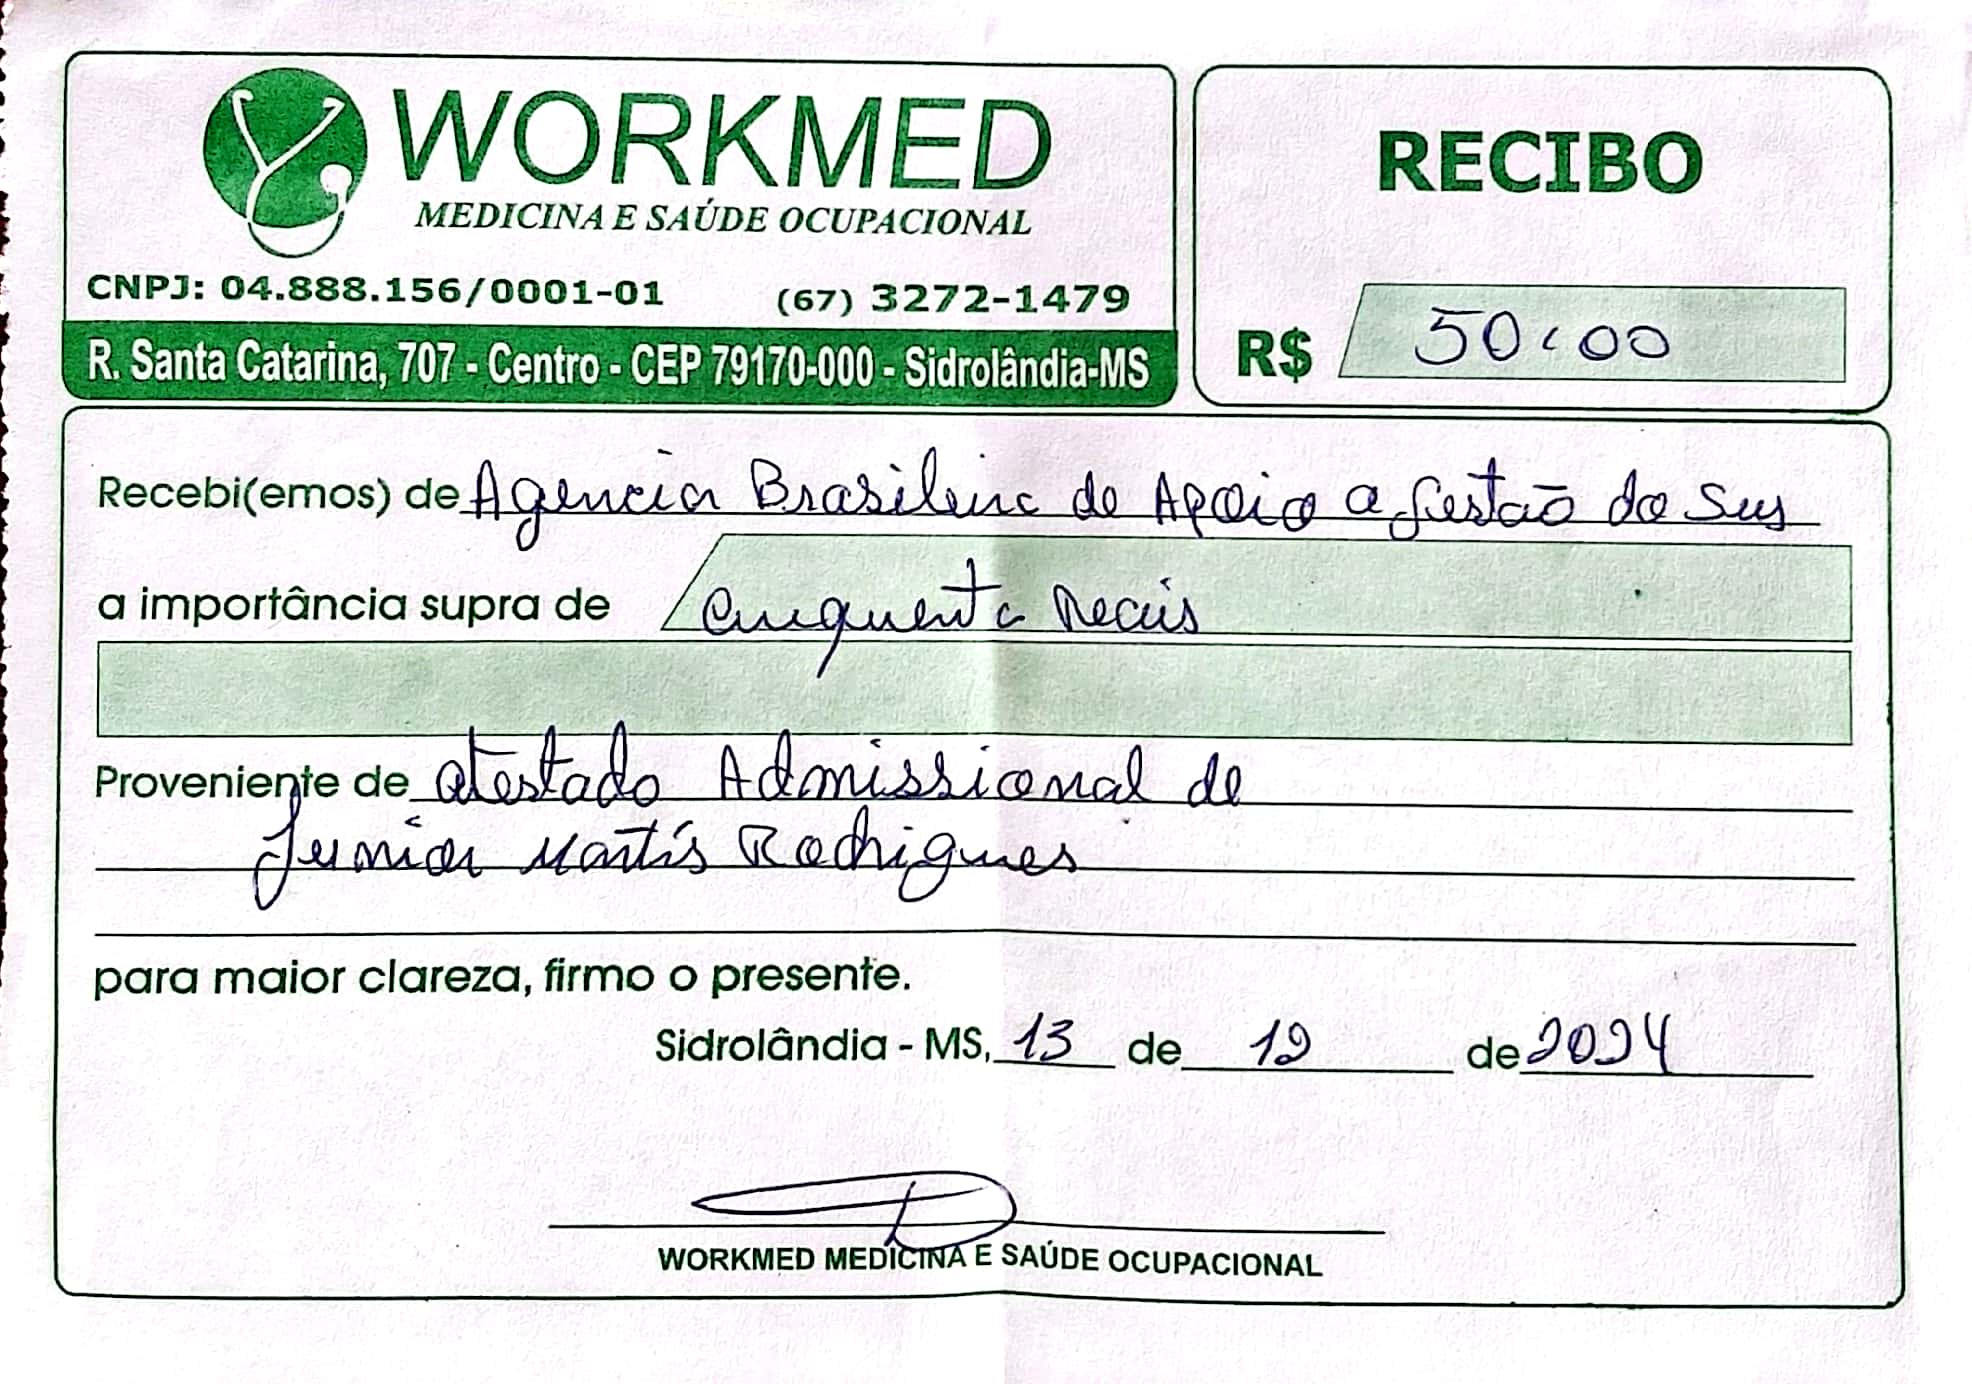 WORKMED
MEDICINA E SAÚDE OCUPACIONAL
CNPJ: 04.888.156/0001-01 (67) 3272-1479
R. Santa Catarina, 707 - Centro - CEP 79170-000 - Sidrolândia-MS
RECIBO
R$ 50,00
Recebi(emos) de Agencia Brasileira de Apoio a Gestão do Sus
a importância supra de Cinquenta Reais
Proveniente de atestado Admissional de
Junior Rodrigues
para maior clareza, firmo o presente.
Sidrolândia - MS, 13 de 12 de 2024
WORKMED MEDICINA E SAÚDE OCUPACIONAL